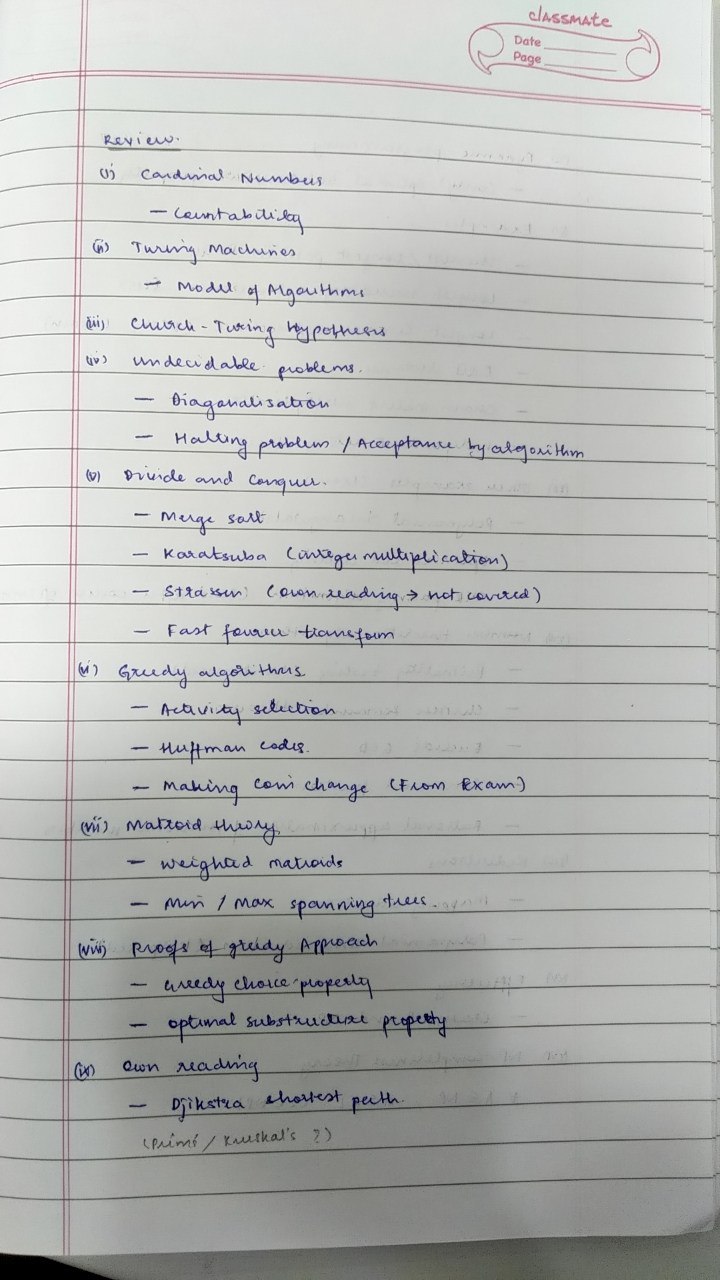 classmate
Date
Page
Review.
(i) Cardinal Numbers
— Countability
(ii) Turing Machines
— Model of Algorithms
(iii) Church - Turing Hypothesis
(iv) Undecidable problems.
— Diagonalisation
— Halting problem / Acceptance by algorithm
(v) Divide and Conquer.
— Merge sort
— Karatsuba (integer multiplication)
— Strassen (own reading → not covered)
— Fast fourier transform
(vi) Greedy algorithms
— Activity selection
— Huffman codes.
— Making coin change (From Exam)
(vii) Matroid theory
— weighted matroids
— Min / Max spanning trees.
(viii) Proofs of greedy Approach
— Greedy choice property
— optimal substructure property
(ix) Own reading
— Djikstra shortest path.
(Prims / Kruskal's ?)